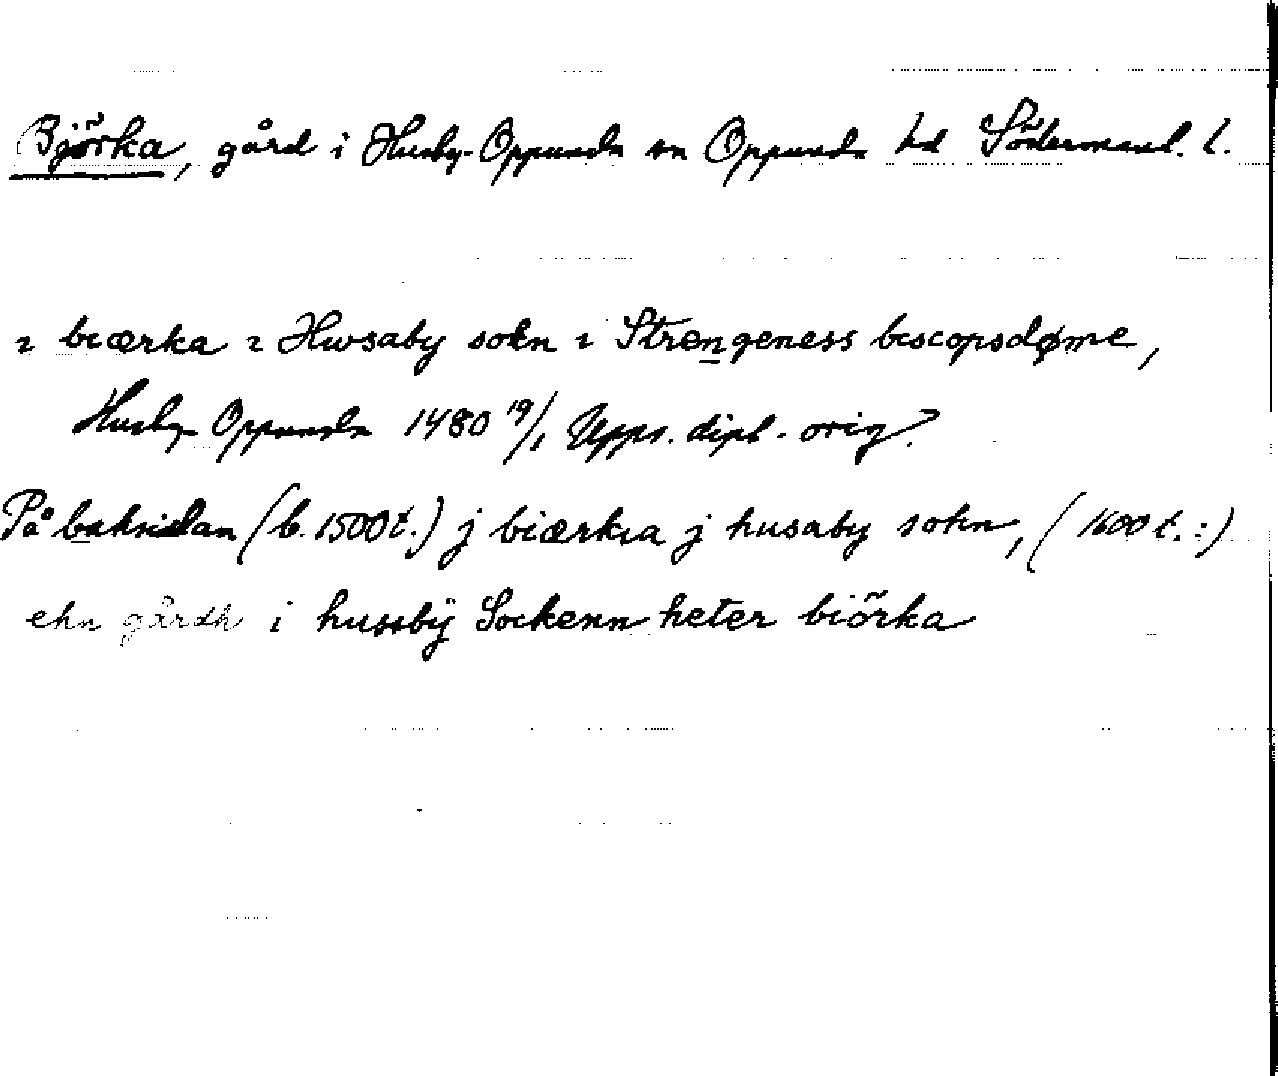 Björka, gård i Husby-Oppunda sn Oppunda hd Södermanl. l.
ı biærka ı Hwsaby sokn ı Strengeness biscopsdøme,
Husby-Oppunda 1480 19/1 Upps. dipl. orig?
På baksidan (b. 1500 t.) j biærkia j husaby sokn, (1600 t. :)
ehn gårdh i hussbÿ Sockenn heter biörka